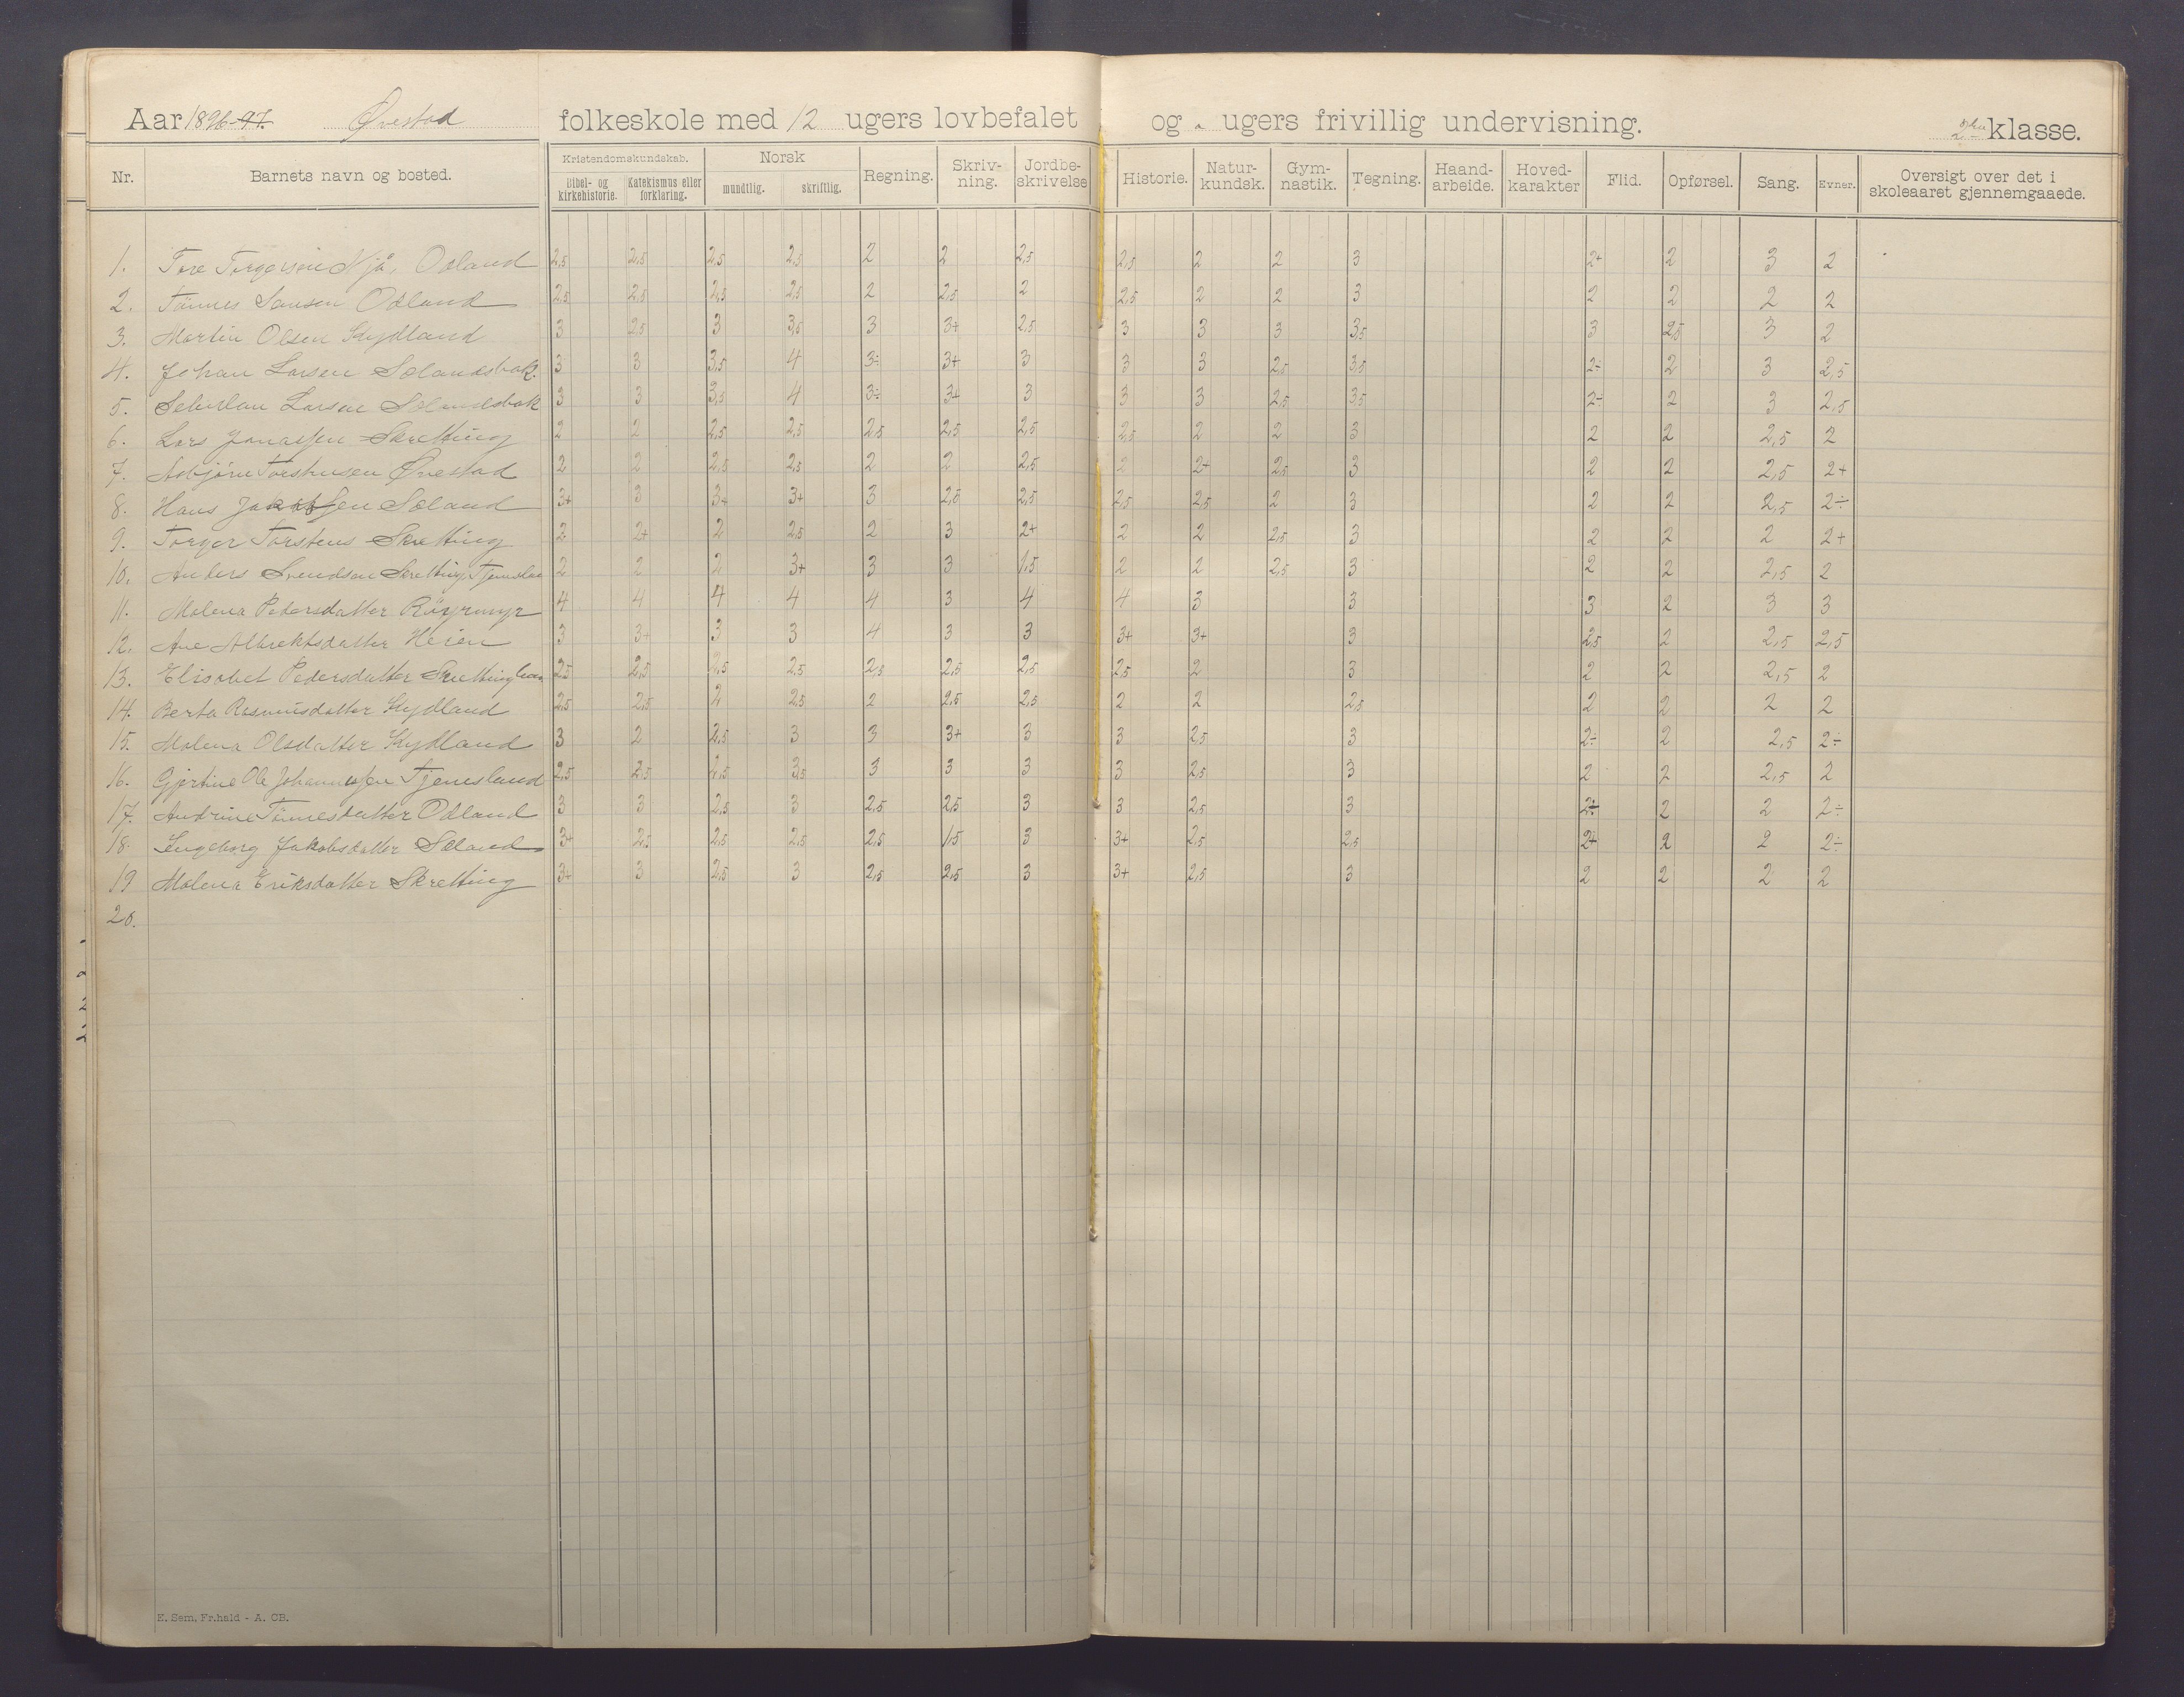 Aar 1896-97. Øvestad folkeskole med 12 ugers lovbefalet og " ugers frivillig undervisning. 2den klasse.
Nr. Barnets navn og bosted. Kristendomskundskab. Bibel- og kirkehistorie. Katekismus eller forklaring. Norsk mundtlig. skriftlig. Regning. Skriv-ning. Jordbe-skrivelse Historie. Natur-kundsk. Gym-nastik. Tegning. Haand-arbeide. Hoved-karakter Flid. Opførsel. Sang. Evner. Oversigt over det i skoleaaret gjennemgaaede.
1. Tore Torgersen Njå, Odland 2,5 2,5 2,5 2,5 2 2 2,5 2,5 2 2 3 2+ 2 3 2
2. Tönnes Jansen Odland 2,5 2,5 2,5 2,5 2 2,5 2 2,5 2 2 3 2 2 2 2
3. Martin Olsen Kydland 3 2,5 3 3,5 3 3+ 2,5 3 3 3 3,5 3 2,5 3 2
4. Johan Larsen Sælandsbak. 3 3 3,5 4 3÷ 3+ 3 3 3 2,5 3,5 2÷ 2 3 2,5
5. Larsen Sælandsbak 3 3 3,5 4 3÷ 3+ 3 3 3 2,5 3,5 2÷ 2 3 2,5
6. Lars Jonassen Skretting 2 2 2,5 2,5 2,5 2,5 2,5 2,5 2 2 3 2 2 2,5 2
7. Asbjörn Torstensen Øvestad 2 2 2,5 2,5 2 2 2,5 2 2+ 2,5 3 2 2 2,5 2+
8. Hans Jakobsen Sæland 3+ 3 3+ 3+ 3 2,5 2,5 2,5 2,5 2 3 2 2 2,5 2÷
9. Torger Torstens Skretting 2 2+ 2 2,5 2 3 2+ 2 2 2,5 3 2 2 2 2+
10. Anders Svendsen Skretting, 2 2 2 3+ 3 3 1,5 2 2 2,5 3 2 2 2,5 2
11. Malena Pedersdatter Röyrmyr 4 4 4 4 4 3 4 4 3 3 3 2 3 3
12. Ane Albrektsdatter Heien 3 3+ 3 3 4 3 3 3+ 3+ 3 2,5 2 2,5 2,5
13. Elisabet Pedersdatter 2,5 2,5 2,5 2,5 2,5 2,5 2,5 2,5 2 3 2 2 2,5 2
14. Berta Rasmusdatter Kydland 2,5 2,5 2 2,5 2 2,5 2,5 2 2 2,5 2 2 2 2
15. Malena Olsdatter Kydland 3 2 2,5 3 3 3+ 3 3 2,5 3 2÷ 2 2,5 2÷
16. Gjertine Ole Johannessen Tjemsland 2,5 2,5 2,5 3,5 3 3 3 3 2,5 3 2 2 2,5 2
17. Andrine Tönnesdatter Odland 3 3 2,5 3 2,5 2,5 3 3 2,5 3 2÷ 2 2 2÷
18. Ingeborg Jakobsdatter Sæland 3+ 2,5 2,5 2,5 2,5 1,5 3 3+ 2,5 2,5 2+ 2 2 2÷
19 Malena Eriksdatter Skretting 3+ 3 2,5 3 2,5 2,5 3 3+ 2,5 3 2 2 2 2
20.
E. Sem, Fr.hald - A. CB.